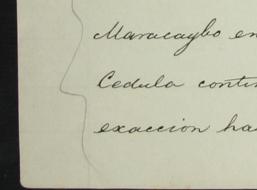 Maracaybo en
Cedula contin
exaccion ha